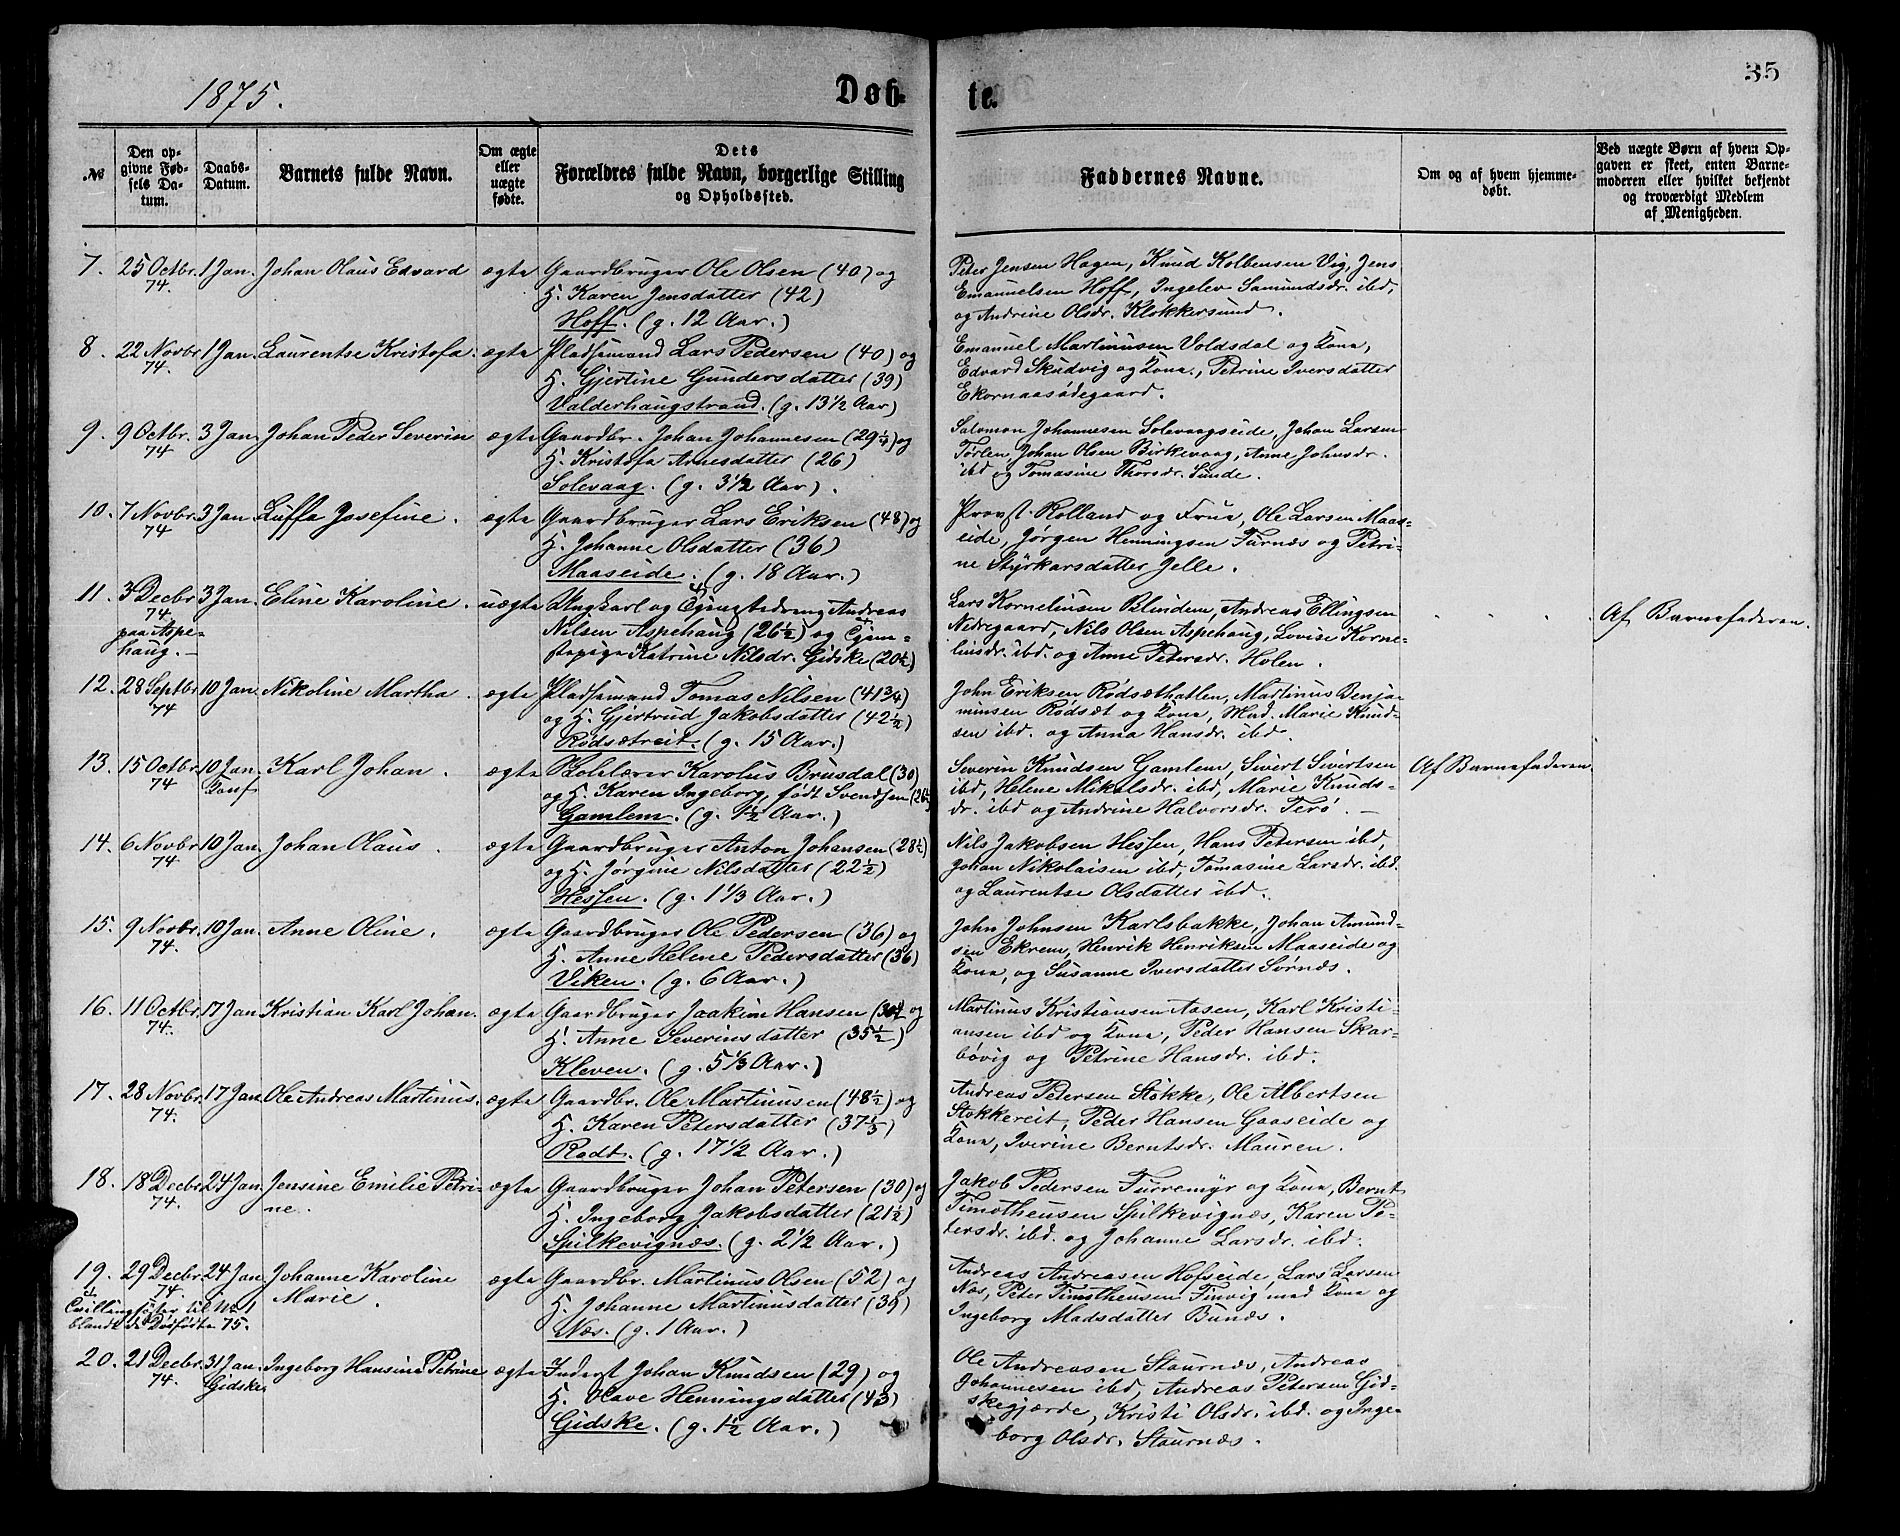 1875.
Døb-
te.
35
№
Den op-
givne Fød-
sels Da-
tum.
Daabs-
Datum.
Barnets fulde Navn.
Om ægte
eller
uægte
fødte.
Dets
Forældres fulde Navn, borgerlige Stilling
og Opholdssted.
Faddernes Navne.
Om og af hvem hjemme-
døbt.
Ved uægte Børn af hvem Op-
gaven er skeet, enten Barne-
moderen eller hvilket bekjendt
og troværdigt Medlem
af Menigheden.
7. 25 Octbr. 1 Jan. Johan Olaus Edvard ægte Gaardbruger Ole Olsen (40) og
74. H. Karen Jensdatter (42)
Hoff. (g. 12 Aar.)
Peter Jensen Hagen, Knud Kolbensen Vig, Jens
Emanuelsen Hoff, Ingelev Samundsdr. ibd,
og Andrine Olsdr. Klokkersund.
8. 22 Novbr 1 Jan. Laurentse Kristofa. ægte Pladsemand Lars Pedersen (40) og
74. H. Gjertine Gundersdatter (39)
Valderhaugstrand. (g. 13 1/2 Aar)
Emanuel Martinusen Voldsdal og Kona,
Edvard Skudvig og Kona, Petrine Iversdatter
Ekornaasødegaard.
9. 9 Octbr. 3 Jan. Johan Peder Severin ægte Gaardbr. Johan Johannesen (29 1/4) og
74 H. Kristofa Arnesdatter (26)
Solevaag. (g. 3 1/2 Aar).
Salomon Johannesen Solevaagseide, Johan Larsen
Tørlen, Johan Olsen Birkevaag, Anne Johnsdr.
ibd og Tomasine Thorsdr. Sunde.
10. 7 Novbr 3 Jan Luffa Josefine. ægte Gaardbruger Lars Eriksen (48) og
74 H. Johanne Olsdatter (36)
Maaseide. (g. 18 Aar.)
Provst Rolland og Frue, Ole Larsen Maas-
eide, Jørgen Henningsen Furnæs og Petri-
ne Styrkarsdatter Jelle.
11. 3 Decbr 3 Jan. Eline Karoline. uægte Ungkarl og Tjenestedreng Andreas
74
paa Aspe-
haug.
Nilsen Aspehaug (26 1/2) og Tjene-
stepige Katrine Nilsdr. Gidske (20 1/2)
Lars Kornelinsen Blindem, Andreas Ellingsen
Nedregaard, Nils Olsen Aspehaug, Lovise Korne-
linsdr. ibd. og Anne Petersdr. Holen.
Af Barnefaderen.
12. 28 Septbr 10 Jan. Nikoline Martha. ægte Pladsemand Tomas Nilsen (41 3/4)
74 og H. Gjertrud Jakobsdatter (42 1/2)
Rødsætreit. (g. 15 Aar.)
John Eriksen Rødsæthatlen, Martinus Benja-
minsen Rødsæt og Kona, Mad. Marie Knud-
sen ibd. og Anna Hansdr. ibd.
13. 15 Octbr. 10 Jan Karl Johan. ægte Skolelærer Karolus Brusdal (30)
74 Konf og H. Karen Ingeborg, født Svendsen (26 1/2)
Gamlem. (g. 1 1/2 Aar.)
Severin Knudsen Gamlem, Sivert Sivertsen
ibd, Helene Mikelsdr. ibd, Marie Knuds-
dr. ibd og Andrine Halvorsdr. Terø.
Af Barnefaderen.
14. 6 Novbr 10 Jan. Johan Olaus. ægte Gaardbruger Anton Johansen (28 1/2)
74. og H. Jørgine Nilsdatter (22 1/2)
Hessen. (g. 1 1/3 Aar.)
Nils Jakobsen Hessen, Hans Petersen ibd,
Johan Nikolaisen ibd, Tomasine Larsdr. ibd.
og Laurentse Olsdatter ibd.
15. 9 Novbr. 10 Jan. Anne Oline. ægte Gaardbruger Ole Pedersen (36) og
74. H. Anne Helene Pedersdatter (36)
Viken. (g. 6 Aar.)
John Johnsen Karlsbakke, Johan Amund-
sen Ekrem, Henrik Henriksen Maaseide og
Kona, og Susanne Iversdatter Sørnæs.
16. 11 Octbr. 17 Jan Kristian Karl Johan. ægte Gaardbruger Joakim Hansen og
74. H. Anne Severinsdatter (35 1/2)
Kleven. (g. 5 1/3 Aar.)
Martinus Kristiansen Aasen, Karl Kristi-
ansen ibd og Kona, Peder Hansen Skar-
bøvig og Petrine Hansdr. ibd.
17. 28 Novbr. 17 Jan. Ole Andreas Martinus. ægte Gaardbr. Ole Martinusen (48 1/2) og
74. H. Karen Petersdatter (37 1/3)
Radt. (g. 17 1/2 Aar.)
Andreas Petersen Støkke, Ole Albertsen
Støkkereit, Peder Hansen Gaaseide og
Kona, Iverine Berntsdr. Mauren.
18. 18 Decbr. 24 Jan. Jensine Emilie Petri- ægte Gaardbruger Johan Petersen (30) og
74. ne. H. Ingeborg Jakobsdatter (21 1/2)
Spilkevignæs. (g. 2 1/2 Aar.)
Jakob Pedersen Furremyr og Kona, Bernt
Timotheusen Spilkevignæs, Karen Pe-
tersdr. ibd. og Johanne Larsdr. ibd.
19. 29 Decbr. 24 Jan. Johanne Karoline ægte Gaardbr. Martinus Olsen (52) og
74. Marie. H. Johanne Martinusdatter (39)
Tvillingsøster til No 1
blandt de Dødfødte 75.
Næs. (g. 1 Aar.)
Andreas Andreasen Hofseide, Lars Larsen
Næs, Peter Timotheusen Tinvig med Kona og
Ingeborg Madsdatter Bunæs.
20. 21 Decbr. 31 Jan. Ingeborg Hansine Petrine ægte Inderst Johan Knudsen (29) og
74. Gidske H. Olave Henningsdatter (43)
Gidske. (g. 1 1/2 Aar.)
Ole Andreasen Staurnæs, Andreas
Johannesen ibd, Andreas Petersen Gid-
skegjærde, Kristi Olsdr. ibd. og Inge-
borg Olsdr. Staurnæs.